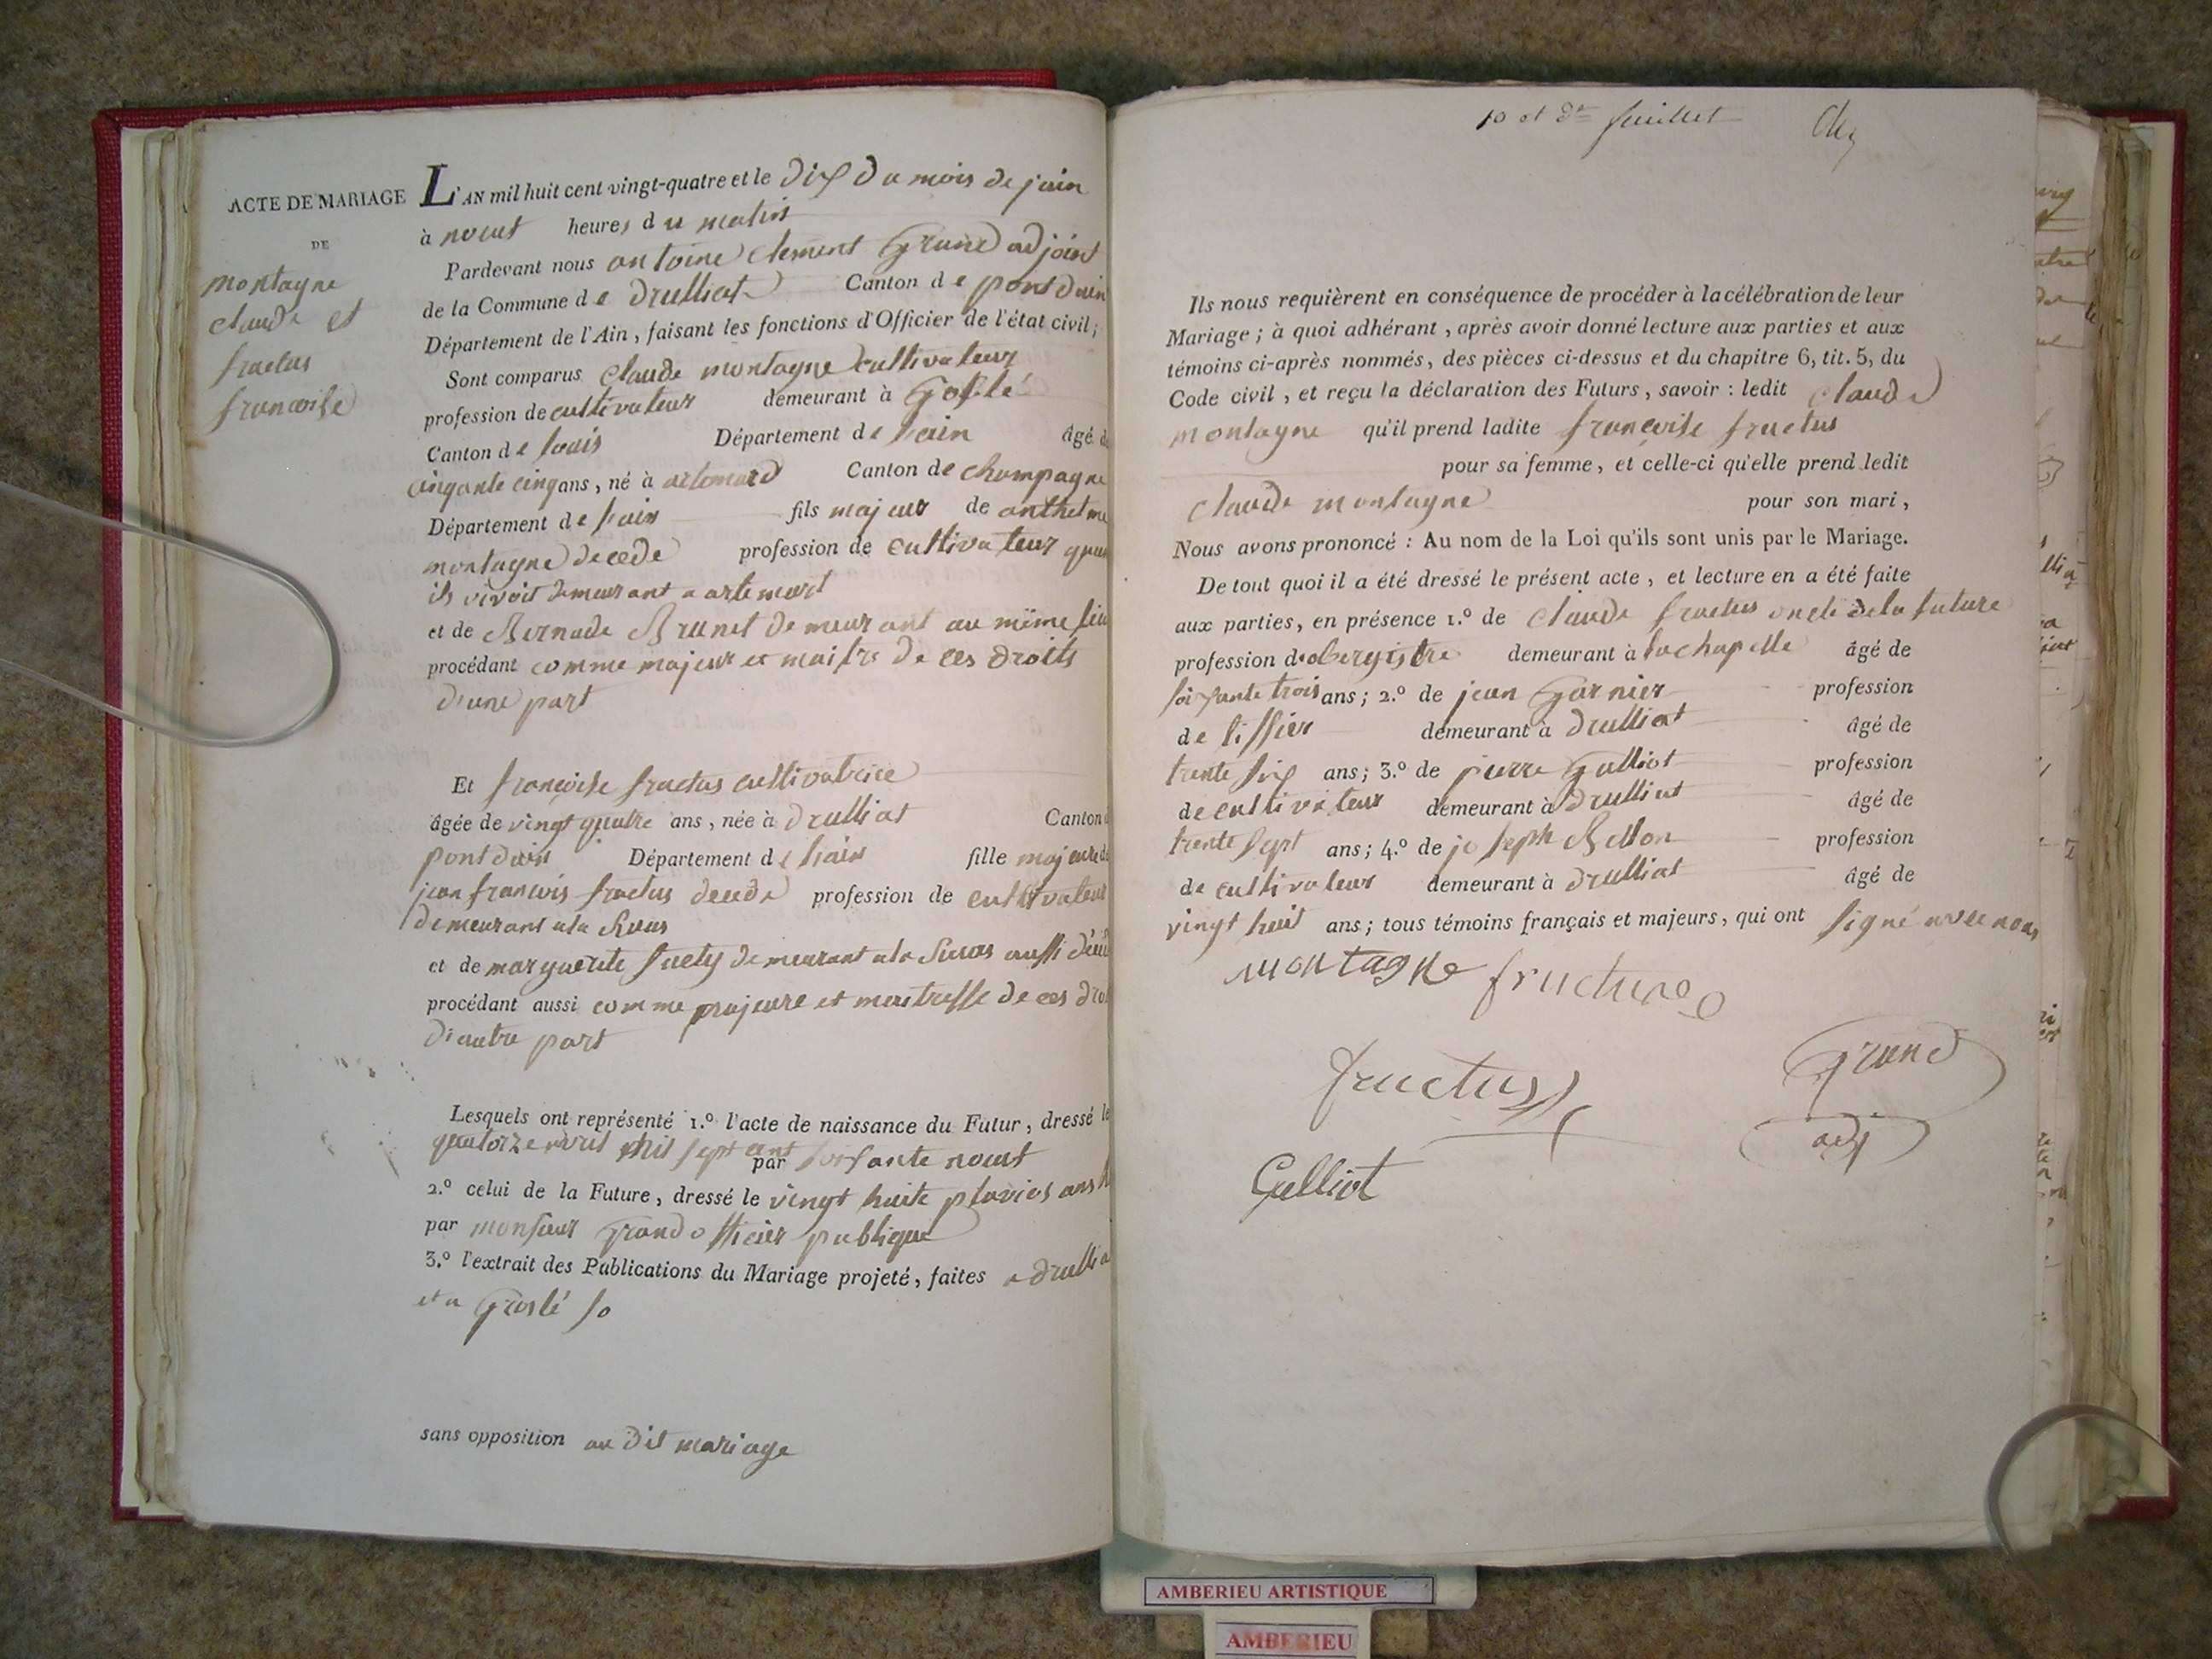 ACTE DE MARIAGE
DE
montagne
claude et
fructus
francoise
L'AN mil huit cent vingt-quatre et le dix du mois de juin
à neuf heures du matin
Pardevant nous antoine clement Grand adjoint
de la Commune de druilliat Canton de pontdain
Département de l'Ain, faisant les fonctions d'Officier de l'état civil;
Sont comparus claude montagne cultivateur
profession de cultivateur demeurant à
Canton de Département de lain âgé de
cinqante cinq ans, né à artemard Canton de champagne
Département de lain fils majeur de anthelme
montagne decede profession de cultivateur quan
ils vivoit demeurant a artemart
et de Bernade Brunet demeurant au même lieu
procédant comme majeur et maitre de ces droits
d'une part
Et françoise fructus cultivatrice
âgée de vingt quatre ans, née à druilliat Canton
pontdain Département de lain fille majeure de
jean francois fructus decede profession de cultivateur
demeurant a la
et de marguerite demeurant a la aussi
procédant aussi comme majeure et maitresse de ces
d'autre part
Lesquels ont représenté 1.º l'acte de naissance du Futur, dressé le
quatorze avril mil sept cent par soixante neuf
2.º celui de la Future, dressé le vingt huite pluvios ans
par monsieur Grand officier publique
3.º l'extrait des Publications du Mariage projeté, faites a
et a
sans opposition au dit mariage
10 et feuillet
Ils nous requièrent en conséquence de procéder à la célébration de leur
Mariage; à quoi adhérant, après avoir donné lecture aux parties et aux
témoins ci-après nommés, des pièces ci-dessus et du chapitre 6, tit. 5, du
Code civil, et reçu la déclaration des Futurs, savoir: ledit claude
montagne qu'il prend ladite françoise fructus
pour sa femme, et celle-ci qu'elle prend ledit
claude montagne pour son mari,
Nous avons prononcé: Au nom de la Loi qu'ils sont unis par le Mariage.
De tout quoi il a été dressé le présent acte, et lecture en a été faite
aux parties, en présence 1.º de claude fructus oncle de la future
profession d'obergistre demeurant à lachapelle âgé de
soixante trois ans; 2.º de jean Garnier profession
de tissier demeurant à druilliat âgé de
trente six ans; 3.º de pierre Gulliot profession
de cultivateur demeurant à druilliat âgé de
trente sept ans; 4.º de joseph Bellon profession
de cultivateur demeurant à druilliat âgé de
vingt huit ans; tous témoins français et majeurs, qui ont signé avec nous
montagne
fructus
Grand
adj
Gulliot
AMBERIEU ARTISTIQUE
AMBERIEU